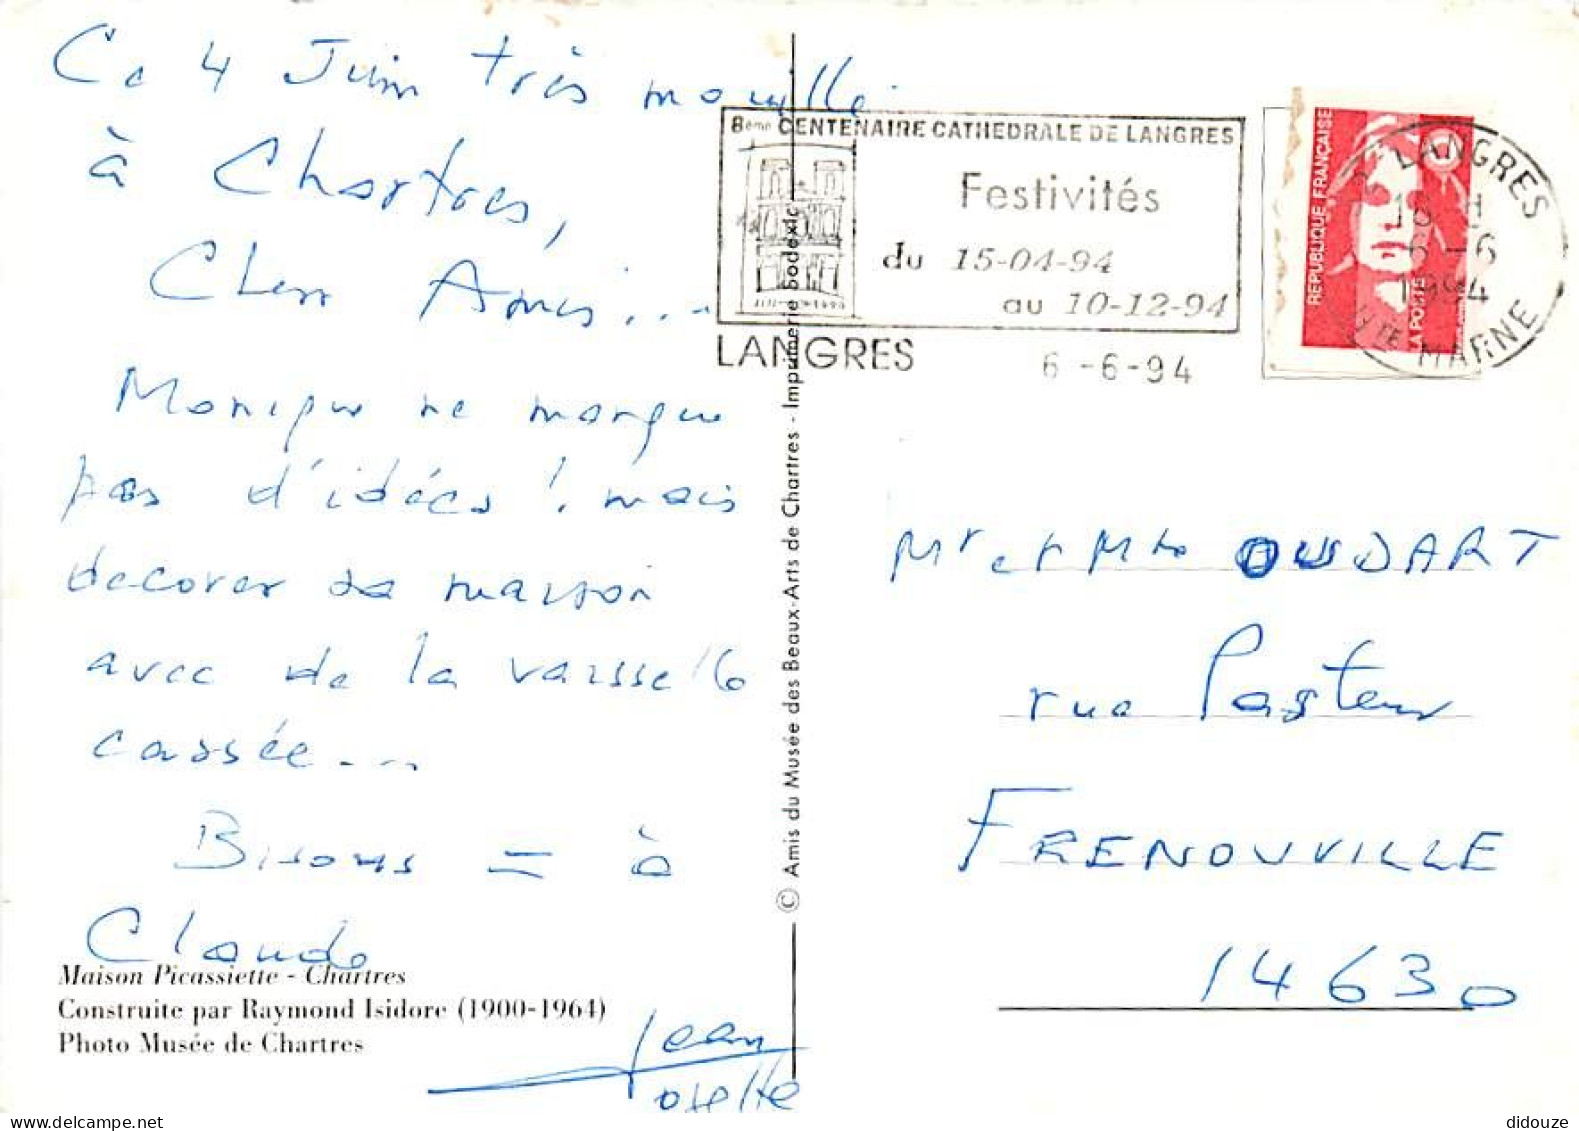 Ce 4 Juin très mouillé
à Chartres,
Chers Amis...
Monique ne manque
pas d'idées ! mais
decorer sa maison
avec de la vaisselle
cassée...
Bisous = à
Claude
Jean
Josette
Maison Picassiette - Chartres
Construite par Raymond Isidore (1900-1964)
Photo Musée de Chartres
© Amis du Musée des Beaux-Arts de Chartres - Imprimerie Sodexic
8ème CENTENAIRE CATHEDRALE DE LANGRES
Festivités
du 15-04-94
au 10-12-94
LANGRES
6 -6-94
REPUBLIQUE FRANÇAISE
LA POSTE
LANGRES
6 -6
1994
Hte MARNE
Mr et Mme OUDART
rue Pasteur
FRENOUVILLE
14630
didouze